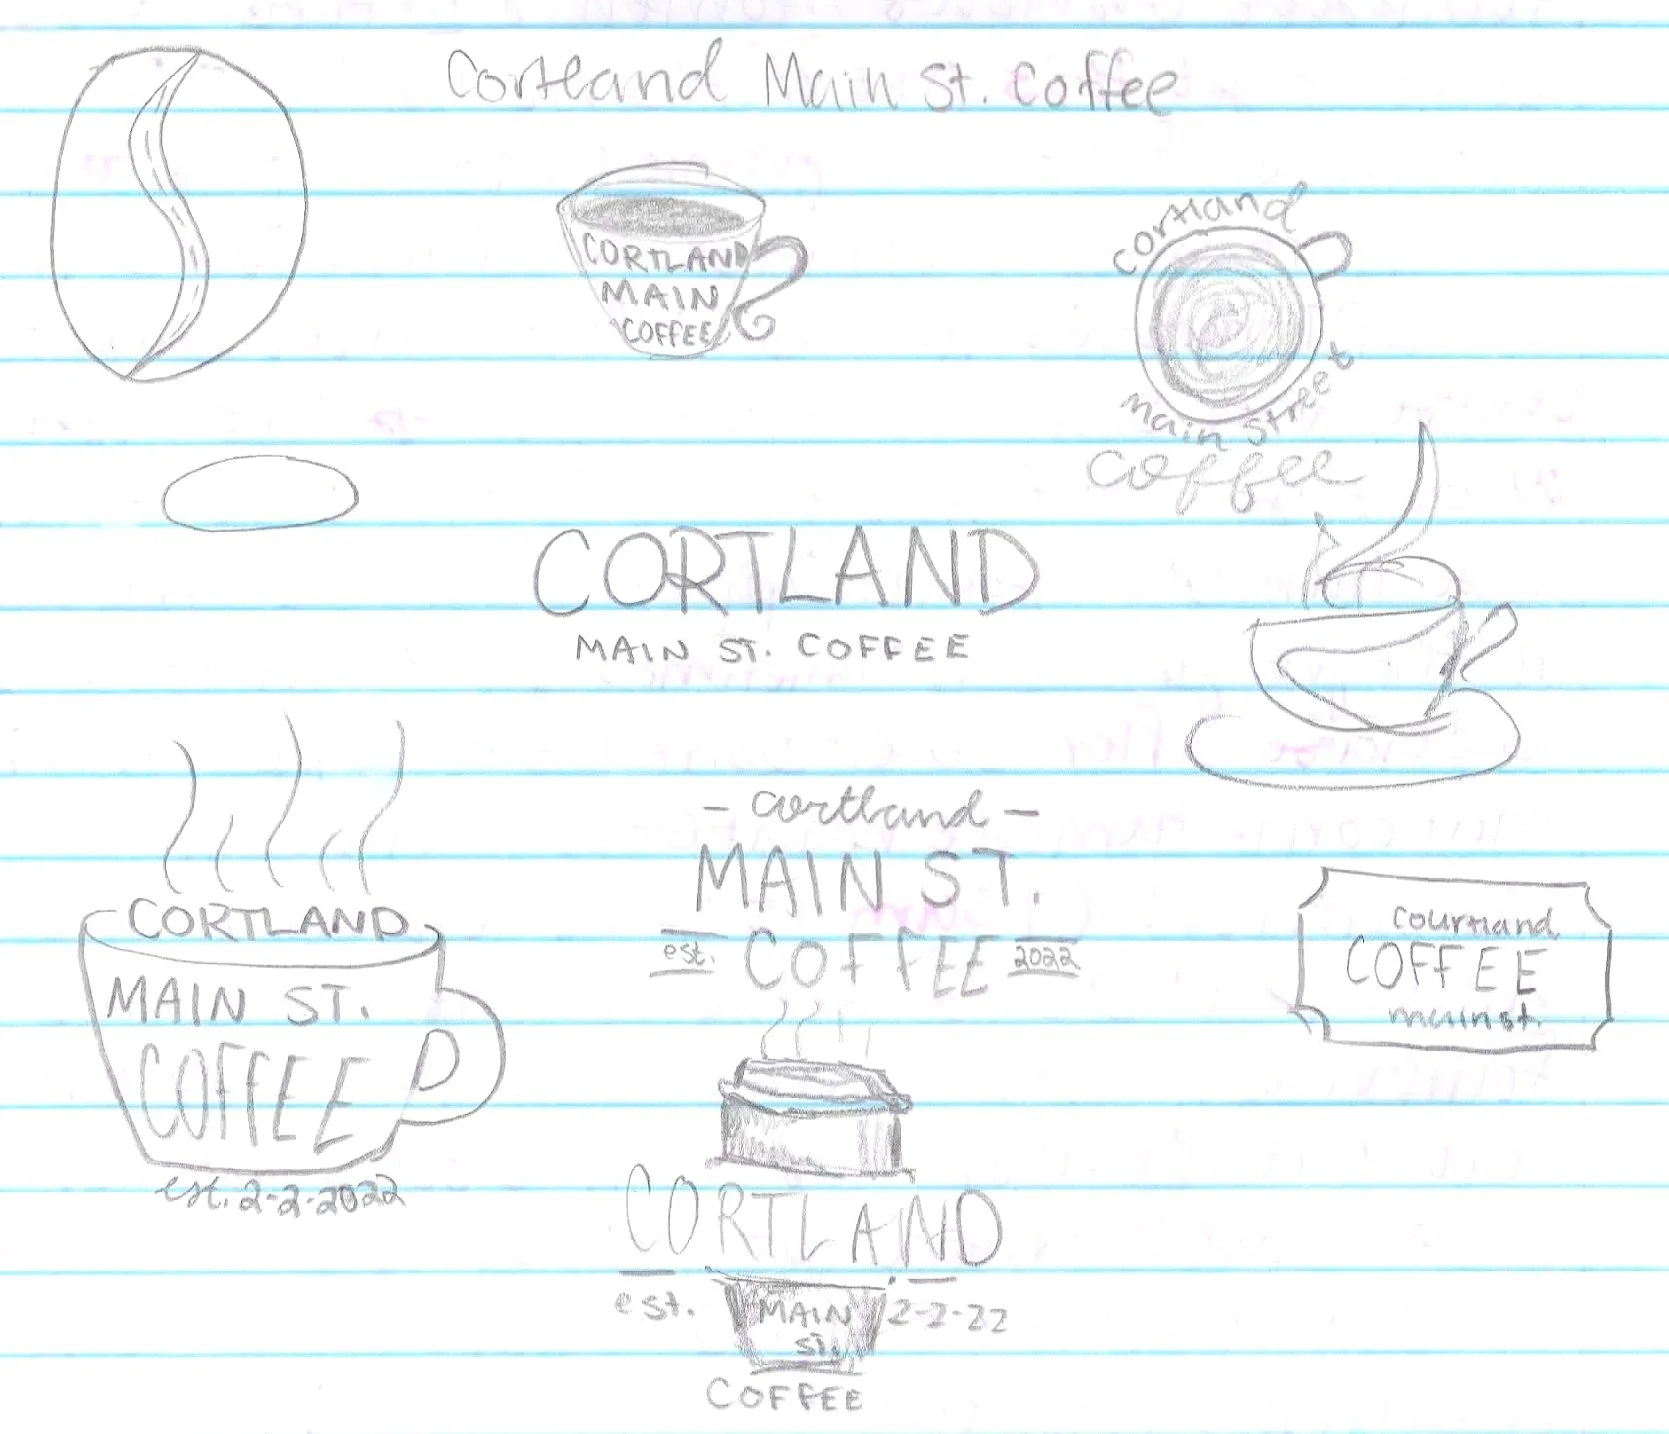 Cortland Main St. Coffee
CORTLAND
MAIN
COFFEE
Cortland
Main Street
Coffee
CORTLAND
MAIN ST. COFFEE
- cortland -
MAIN ST.
est. COFFEE 2022
CORTLAND
MAIN ST.
COFFEE
est. 2-2-2022
courtland
COFFEE
main st.
CORTLAND
est. MAIN 2-2-22
St.
COFFEE